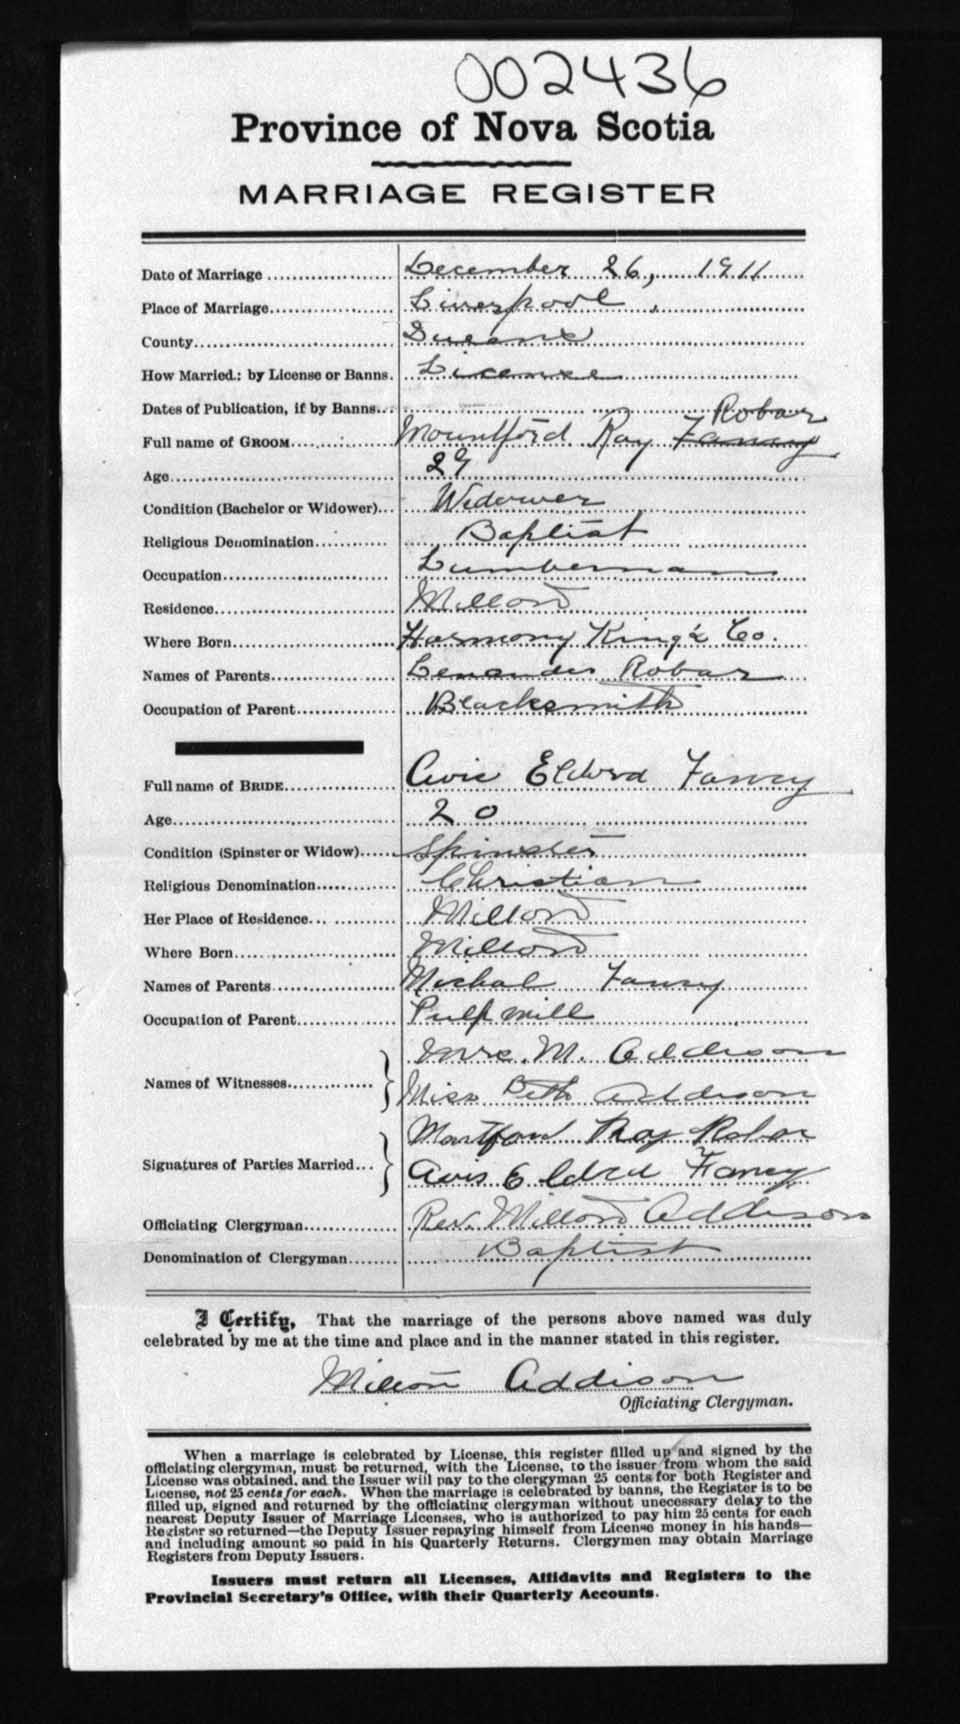 002436
Province of Nova Scotia
MARRIAGE REGISTER
Date of Marriage December 26, 1911
Place of Marriage Liverpool
County Queens
How Married: by License or Banns. License
Dates of Publication, if by Banns
Robar
Full name of GROOM Mountford Ray Fancy
Age 29
Condition (Bachelor or Widower) Widower
Religious Denomination Baptist
Occupation Lumberman
Residence Milton
Where Born Harmony King's Co.
Names of Parents Lenander Robar
Occupation of Parent Blacksmith
Full name of BRIDE Avis Eldred Fancy
Age 20
Condition (Spinster or Widow) Spinster
Religious Denomination Christian
Her Place of Residence Milton
Where Born Milton
Names of Parents Michal Fancy
Occupation of Parent Pulp mill
Mrs. M. Addison
Names of Witnesses
Miss Beth Addison
Ray Robar
Signatures of Parties Married
Avis Eldred Fancy
Officiating Clergyman Rev. Milton Addison
Denomination of Clergyman Baptist
I Certify, That the marriage of the persons above named was duly
celebrated by me at the time and place and in the manner stated in this register.
Milton Addison
Officiating Clergyman.
When a marriage is celebrated by License, this register filled up and signed by the
officiating clergyman, must be returned, with the License, to the issuer from whom the said
License was obtained, and the Issuer will pay to the clergyman 25 cents for both Register and
License, not 25 cents for each. When the marriage is celebrated by banns, the Register is to be
filled up, signed and returned by the officiating clergyman without unnecessary delay to the
nearest Deputy Issuer of Marriage Licenses, who is authorized to pay him 25 cents for each
Register so returned—the Deputy Issuer repaying himself from License money in his hands—
and including amount so paid in his Quarterly Returns. Clergymen may obtain Marriage
Registers from Deputy Issuers.
Issuers must return all Licenses, Affidavits and Registers to the
Provincial Secretary's Office, with their Quarterly Accounts.